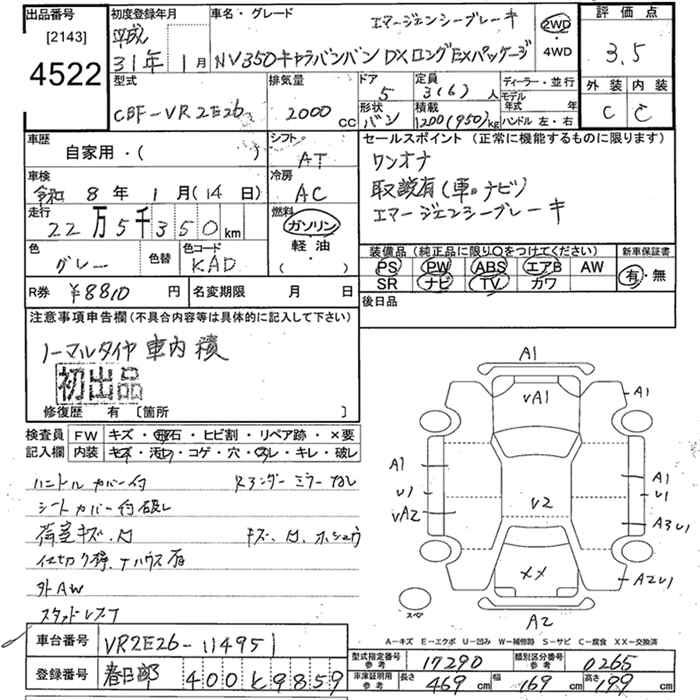 出品番号
[2143]
4522
初度登録年月
平成
31年 1月
車名・グレード
エマージェンシーブレーキ
NV350キャラバンバン DXロングEXパッケージ
2WD
・
4WD
評価点
3.5
外装 内装
C C
型式
CBF-VR2E26
排気量
2000 cc
ドア
5
形状
バン
定員
3(6)人
積載
1200(950)kg
ディーラー・並行
モデル
年式 年
ハンドル 左・右
車歴
自家用・( )
シフト
AT
車検
令和 8年 1月(14日)
冷房
AC
走行
22万5千350km
燃料
ガソリン
・
軽油
・
( )
色
グレー
色替
色コード
KAD
R券 ¥8810 円
名変期限 月 日
セールスポイント (正常に機能するものに限ります)
ワンオナ
取説有(車・ナビ)
エマージェンシーブレーキ
装備品(純正品に限り○をつけてください)
PS PW ABS エアB AW
SR ナビ TV カワ
新車保証書
有・無
後日品
注意事項申告欄(不具合内容等は具体的に記入して下さい)
ノーマルタイヤ 車内積
初出品
修復歴 有 [箇所 ]
検査員
記入欄
FW キズ・飛石・ヒビ割・リペア跡・×要
内装 キズ・汚れ・コゲ・穴・スレ・キレ・破レ
ハンドルカバー付
シートカバー付 破レ
荷室キズ、凹
外AW
スタッドレス
A1
vA1
A1
A1
U1
vA2
A1
U1
A3U1
v2
XX
A2U1
A2
スペア
A-キズ E-エクボ U-凹み W-補修跡 S-サビ C-腐食 XX-交換済
車台番号 VR2E26-114951
登録番号 春日部 400 と 9859
型式指定番号
参考
17290
類別区分番号
参考
0265
車庫証明用
参考
長さ 469cm 幅 169cm 高さ 199cm